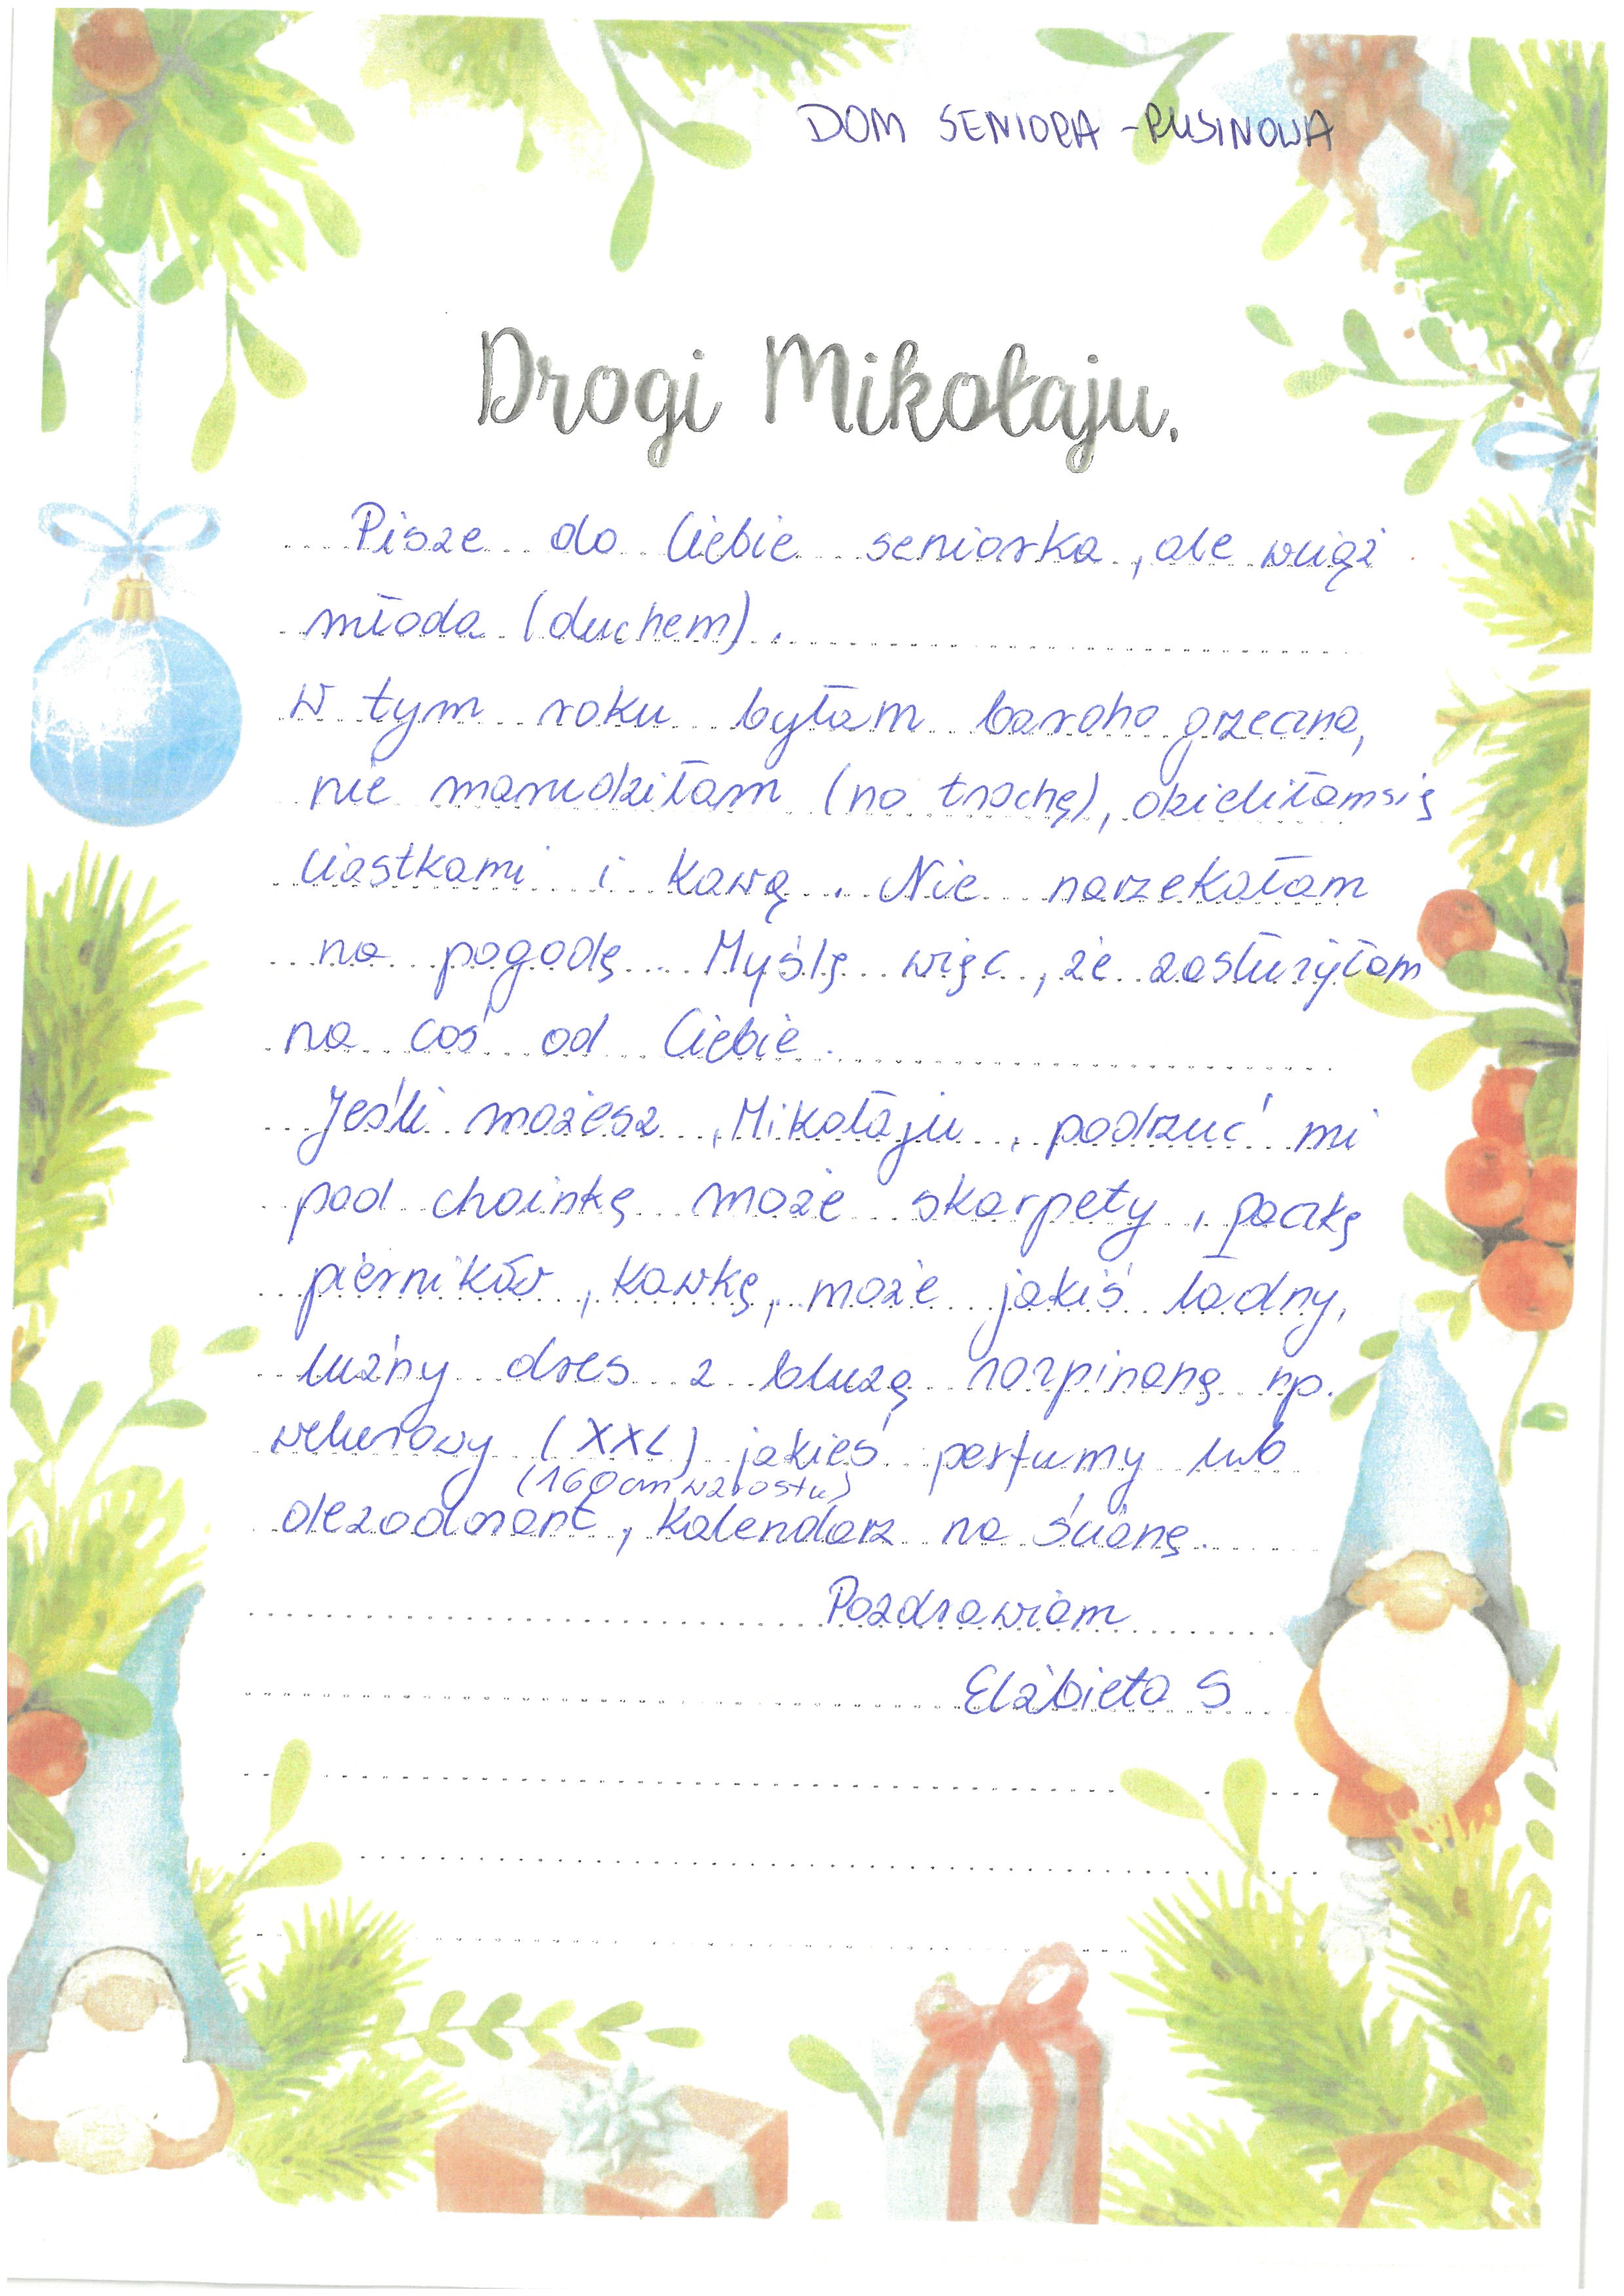 DOM SENIORA - RUSINOWA
Drogi Mikołaju,
Pisze do Ciebie seniorka, ale wciąż
młoda (duchem).
W tym roku byłam bardzo grzeczna,
nie marudziłam (no trochę), dzieliłam się
ciastkami i kawą. Nie narzekałam
na pogodę. Myślę więc, że zasłużyłam
na coś od Ciebie.
Jeśli możesz, Mikołaju, podrzuć mi
pod choinkę może skarpety, paczkę
pierników, kawkę, może jakiś ładny,
luźny dres z bluzą rozpinaną np.
welurowy (XXL) jakieś perfumy lub
(160 cm wzrostu)
dezodorant, kalendarz na ścianę.
Pozdrawiam
Elżbieta S